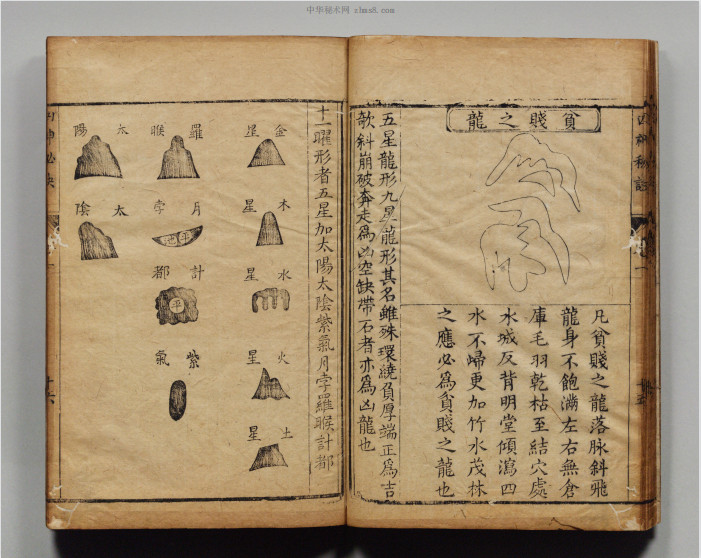 中华秘术网 zhms8.com
貧賤之龍
凡貧賤之龍落脉斜飛
龍身不飽滿左右無倉
庫毛羽乾枯至結穴處
水城反背明堂傾瀉四
水不歸更加竹水茂林
之應必爲貧賤之龍也
五星龍形九星龍形其名雖殊環繞負厚端正爲吉
欹斜崩破奔走爲凶空缺帶石者亦爲凶龍也
十一曜形者五星加太陽太陰紫氣月孛羅睺計都
金星
木星
水星
火星
土星
羅睺
月孛
平池
計都
平
紫氣
太陽
太陰
十六